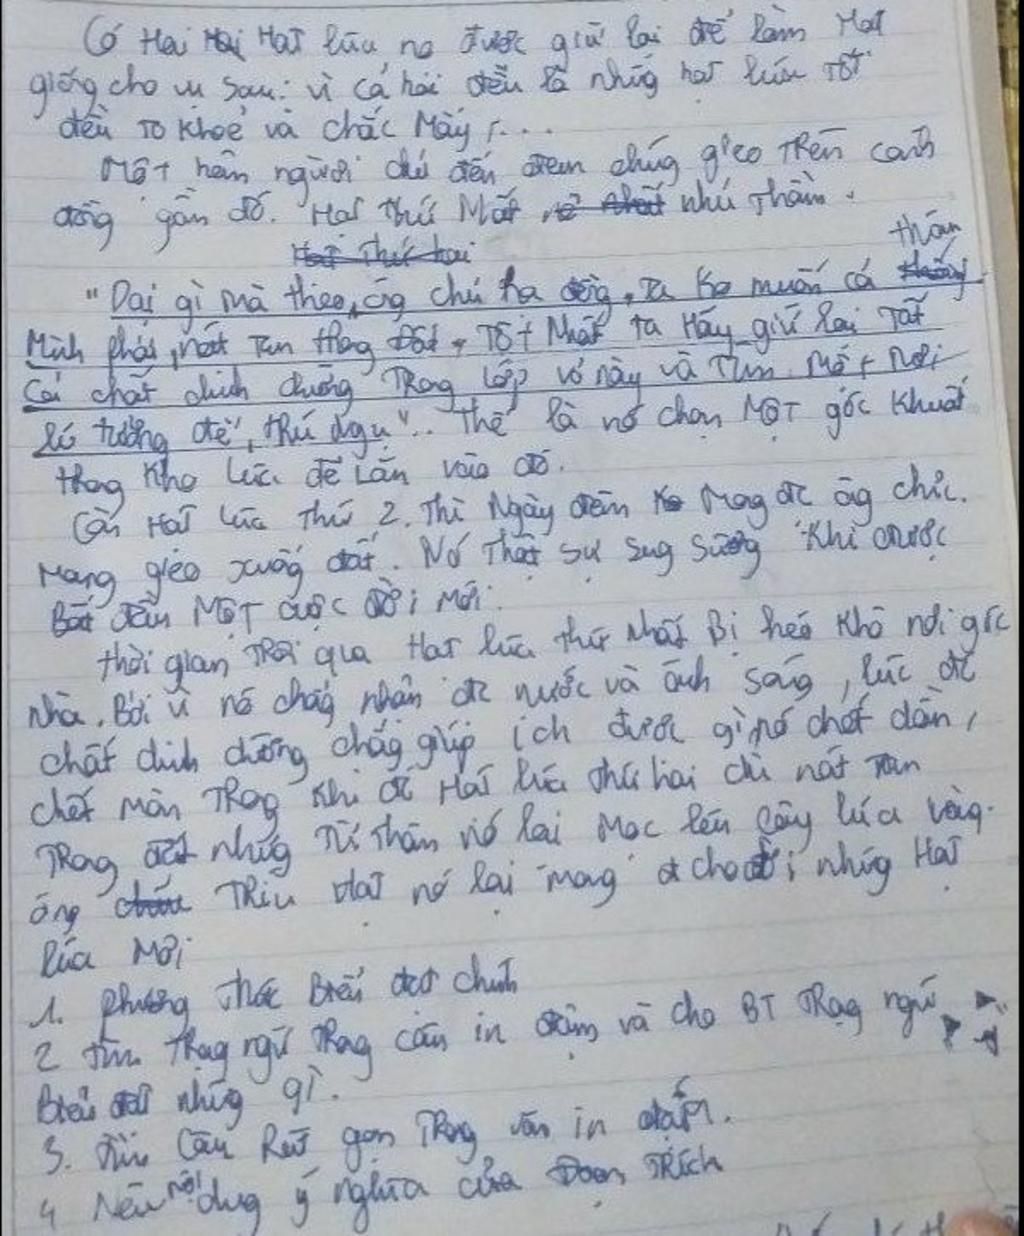 Có Hai Hạt lúa nọ được giữ lại để làm Hạt
giống cho vụ sau: vì cả hai đều là những hạt lúa tốt
đều to khoẻ và chắc Mẩy,...
Một hôm người chủ đến đem chúng gieo trên cánh
đồng gần đó. Hạt thứ Nhất nhủ thầm.
Hạt thứ hai
thân
"Dại gì mà theo ông chủ Ra đồng, Ta Ko muốn cả
Mình phải nát Tan trong Đất. Tốt Nhất ta Hãy giữ lại Tất
Cả chất dinh dưỡng Trong lớp vỏ này và Tìm Một Nơi
lí tưởng để trú ngụ".. thế là nó chọn MỘT góc khuất
trong Kho lúa để Lăn vào đó.
Còn Hạt lúa thứ 2. Thì Ngày đêm Mong đc ông chủ.
Mang gieo xuống đất. Nó Thật sự sung sướng Khi được
Bắt đầu MỘT cuộc đời Mới.
thời gian Trôi qua Hạt lúa thứ Nhất Bị héo Khô nơi góc
Nhà. Bởi vì nó chẳng nhận đc nước và ánh sáng, lúc
chất dinh dưỡng chẳng giúp ích được gì nó chết dần,
chết mòn Trong Khi đó Hạt lúa thứ hai dù nát Tan
Trong đất nhưng Từ thân nó lại Mọc lên Cây lúa vàng.
óng Trĩu Hạt nó lại mang cho đời những Hạt
lúa Mới
1. phương thức Biểu đạt chính
2 tìm Trạng ngữ Trong câu in đậm và cho BT Trạng ngữ
Biểu đạt những gì.
3. tìm Câu Rút gọn Trong văn in đậm.
4 Nêu nội dung ý nghĩa của Đoạn TRích